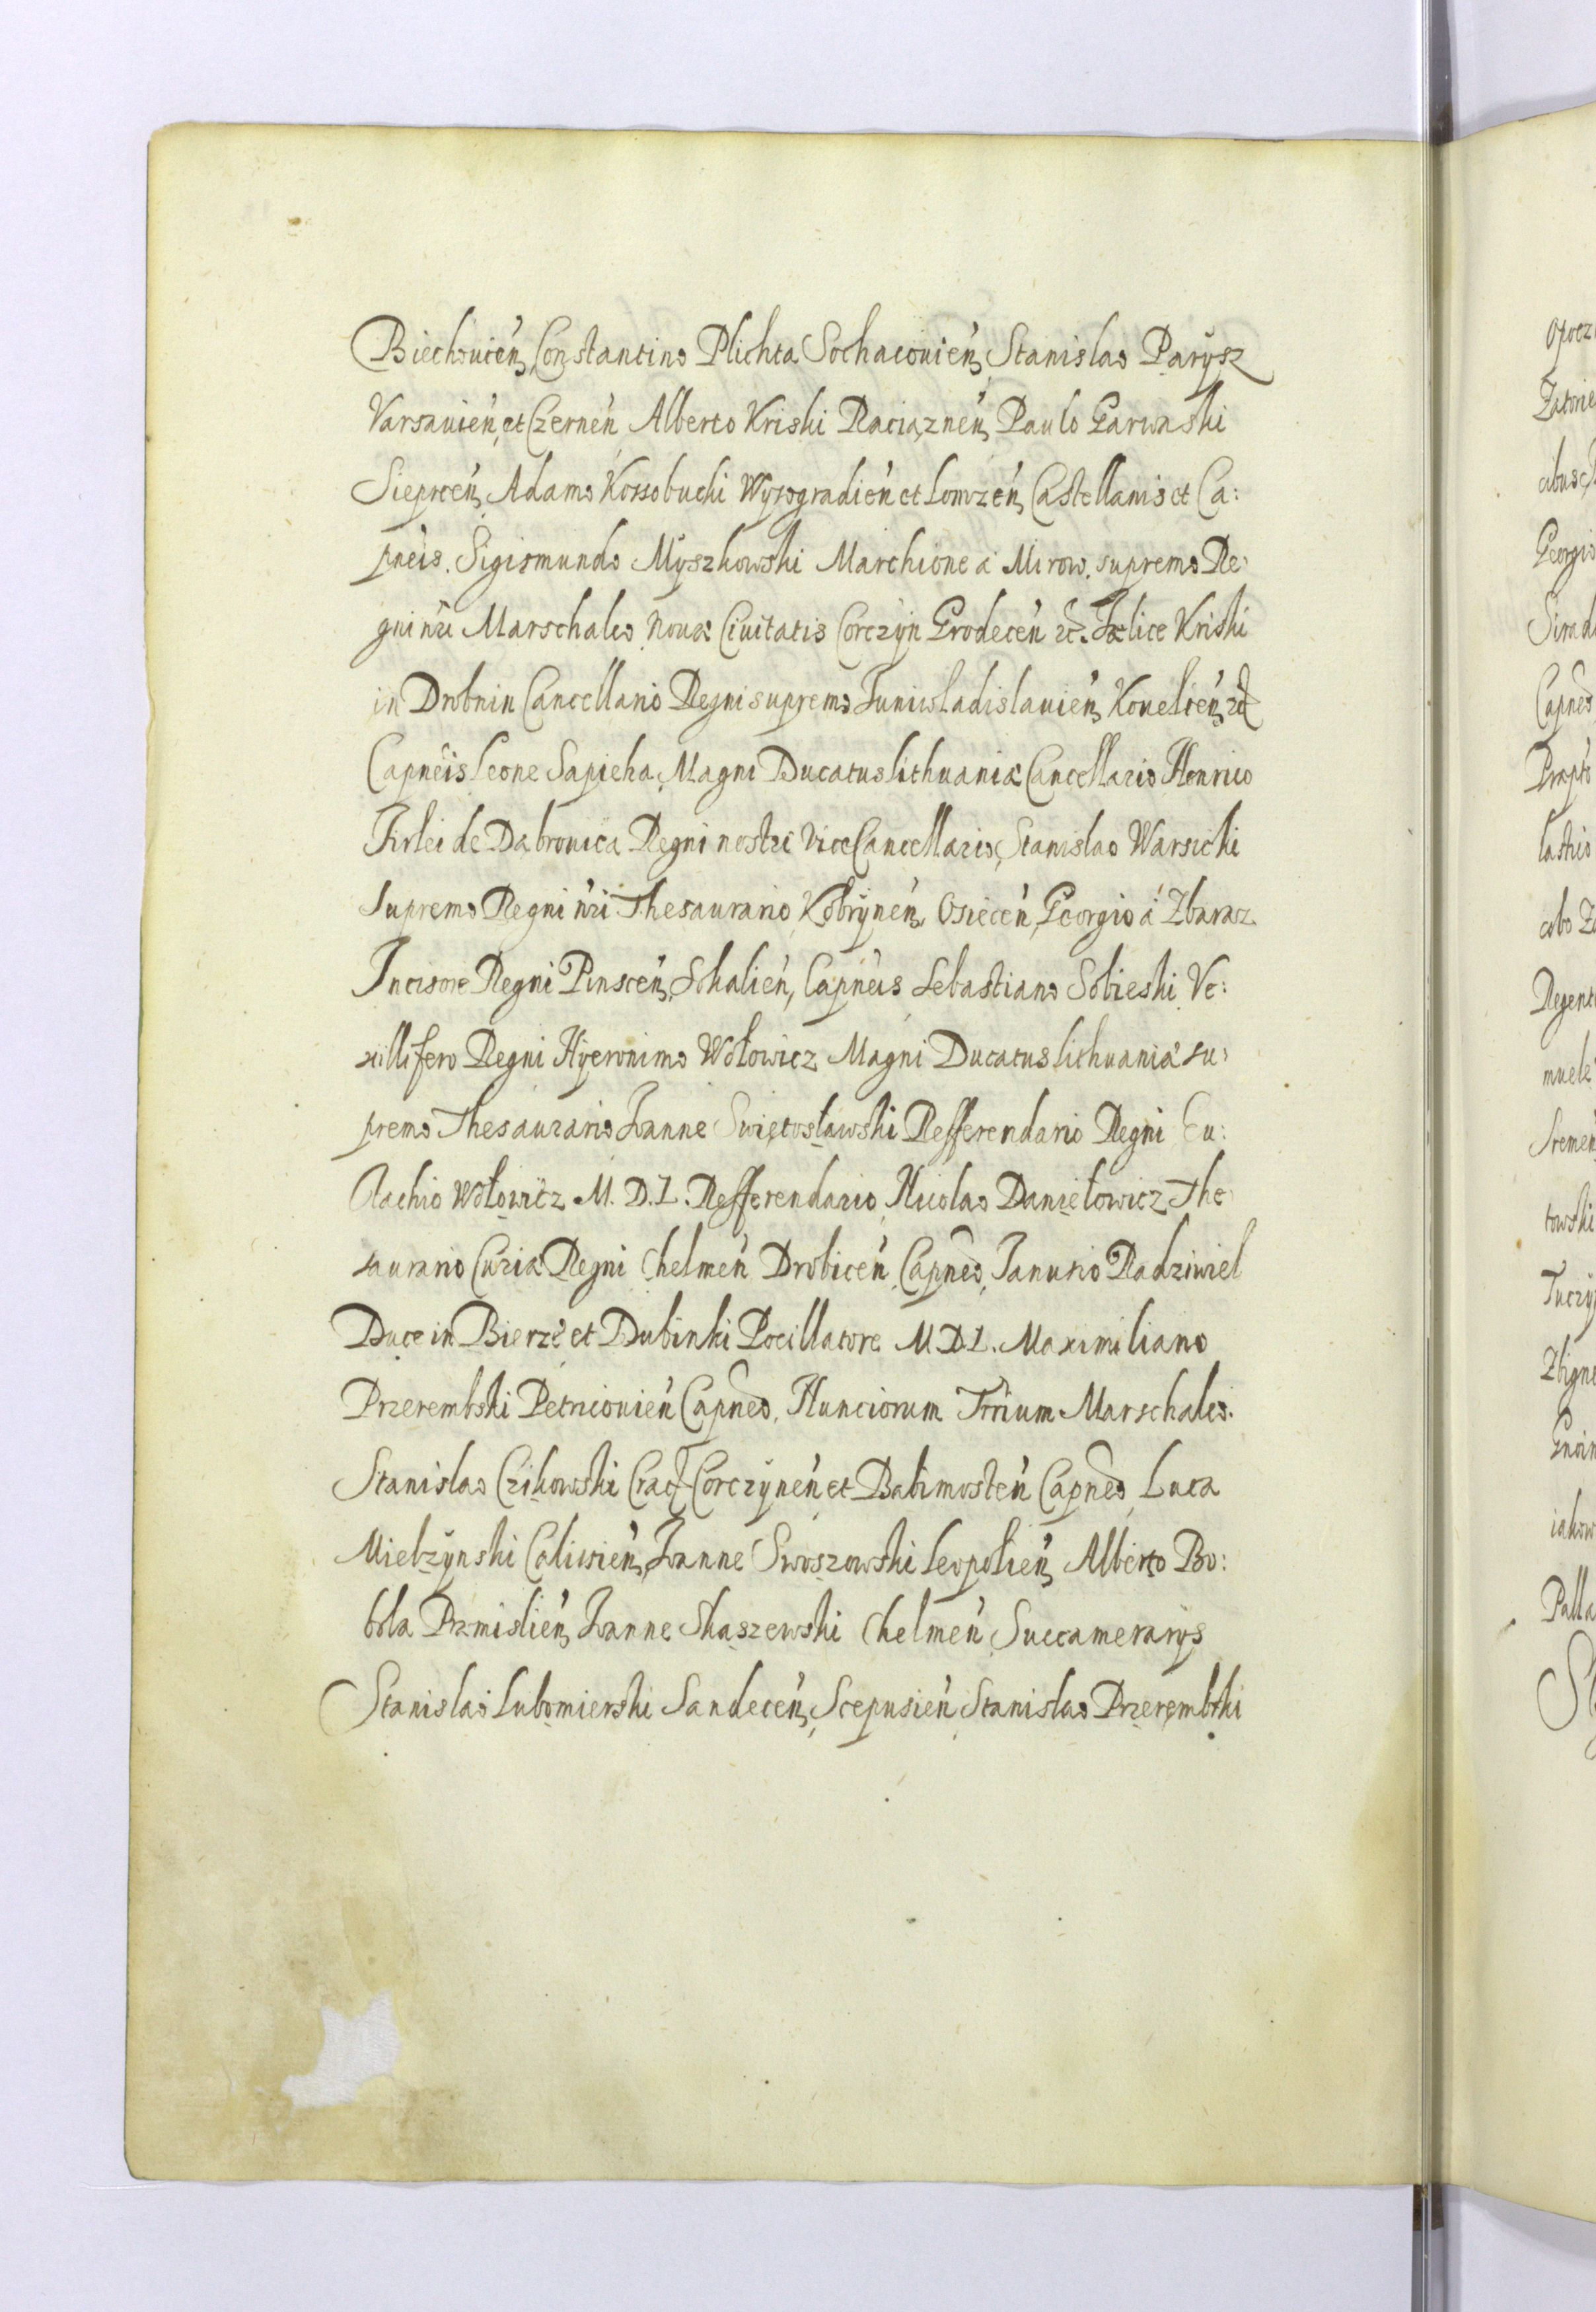 Biechouień, Constantino Plichta Sochacouień, Stanislao Parÿsz
Varsauień, et Czerneń Alberto Kriski Raciązneń, Paulo Garwaski
Sieprceń, Adamo Kossobucki Wysogradień et Lomzeń, Castellanis et Ca:
pneis. Sigismundo Mÿszkowski Marchione á Mirow, supremo Re:
gni nri Marschalco, Nouæ Ciuitatis Corczÿn Grodeceń etc. Fælice Kriski
in Drobnin Cancellario Regni supremo Juniwladislauień, Koueliceń, etc
Capneis Leone Sapieha, Magni Ducatus Lithuaniæ Cancellario Henrico
Firlei de Dąbrouica Regni nostri ViceCancellario, Stanislao Warsicki
Supremo Regni nri Thesaurario, Kobrÿneń, Osieceń, Georgio á Zbaraz
Incisore Regni Pinsceń, Sokalień, Capneis Sebastiano Sobieski Ve:
xillifero Regni Hÿeronimo Wołowicz Magni Ducatus Lithuaniæ su:
premo Thesaurario Joanne Swiętosławski Refferendario Regni Eu:
stachio Wołowicz M. D. L. Refferendario, Nicolao Daniełowicz The
saurario Curiæ Regni Chelmeń Drobiceń, Capneo, Janusio Radziwiel
Duce in Bierze et Dubinki Pocillatore M D L. Maximiliano
Przerembski Petricouień Capneo, Nunciorum Trrium Marschalco.
Stanislao Czikowski Crac Corczÿneń et Babimosteń Capneo, Luca
Mielzÿnski Calisień, Joanne Swoszowski Leopolień, Alberto Bo:
bola Prmislień, Joanne Skaszewski Chelmeń Succamerarÿs
Stanislao Lubomierski Sandeceń, Scepusień Stanislao Przerembski
opocz
Zatorie
Georgio
Capneo
Sremeń
towski